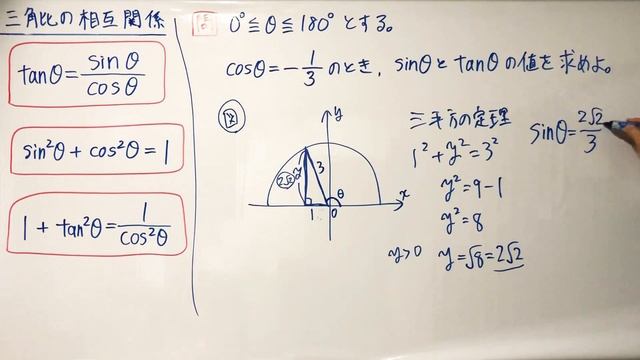 三角比の相互関係
tanθ = sinθ/cosθ
sin²θ + cos²θ = 1
1 + tan²θ = 1/cos²θ
0° ≦ θ ≦ 180° とする。
cosθ = -1/3 のとき, sinθ と tanθ の値を求めよ。
図
y
3
2√2
θ
1
0
x
三平方の定理
1² + y² = 3²
y² = 9 - 1
y² = 8
y > 0 y = √8 = 2√2
sinθ = 2√2/3